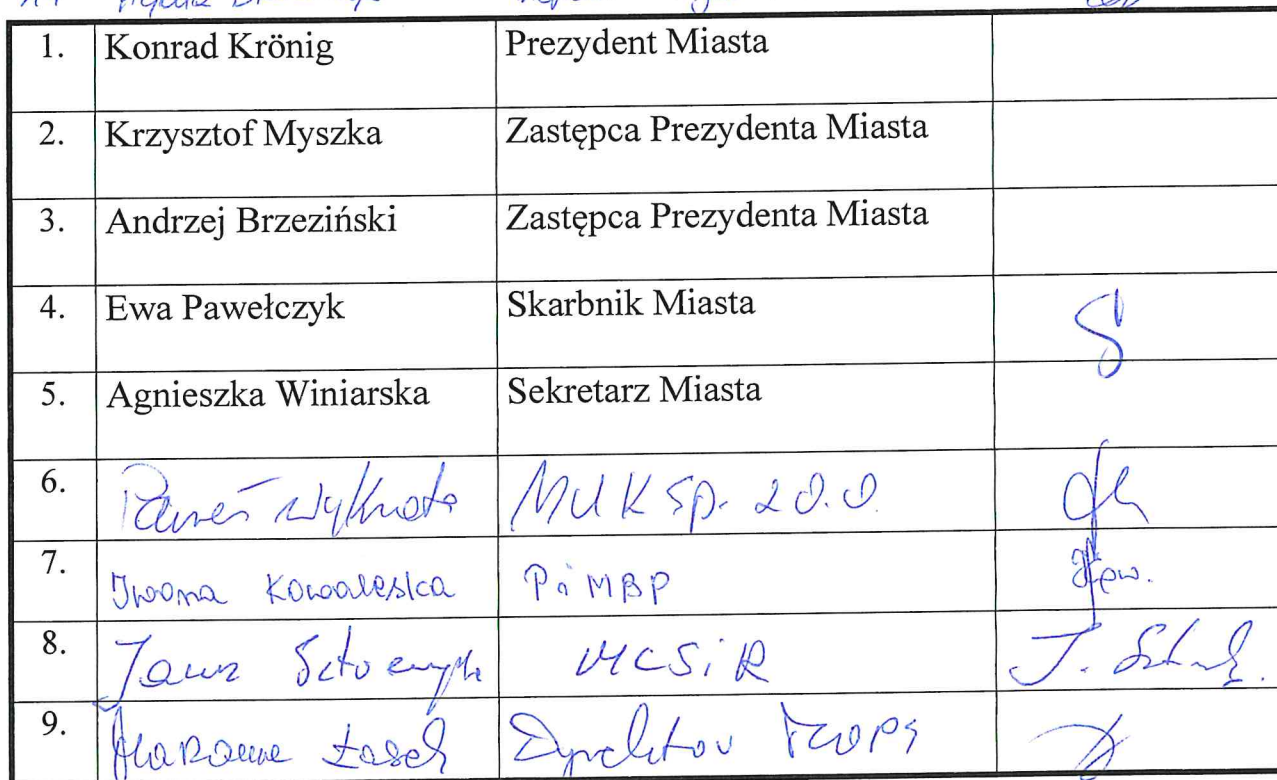 1. Konrad Krönig Prezydent Miasta
2. Krzysztof Myszka Zastępca Prezydenta Miasta
3. Andrzej Brzeziński Zastępca Prezydenta Miasta
4. Ewa Pawełczyk Skarbnik Miasta
5. Agnieszka Winiarska Sekretarz Miasta
6. Paweł MUK Sp. z o.o.
7. Iwona Kowaleska PiMBP
8. MCSiR J.
9. Dyrektor